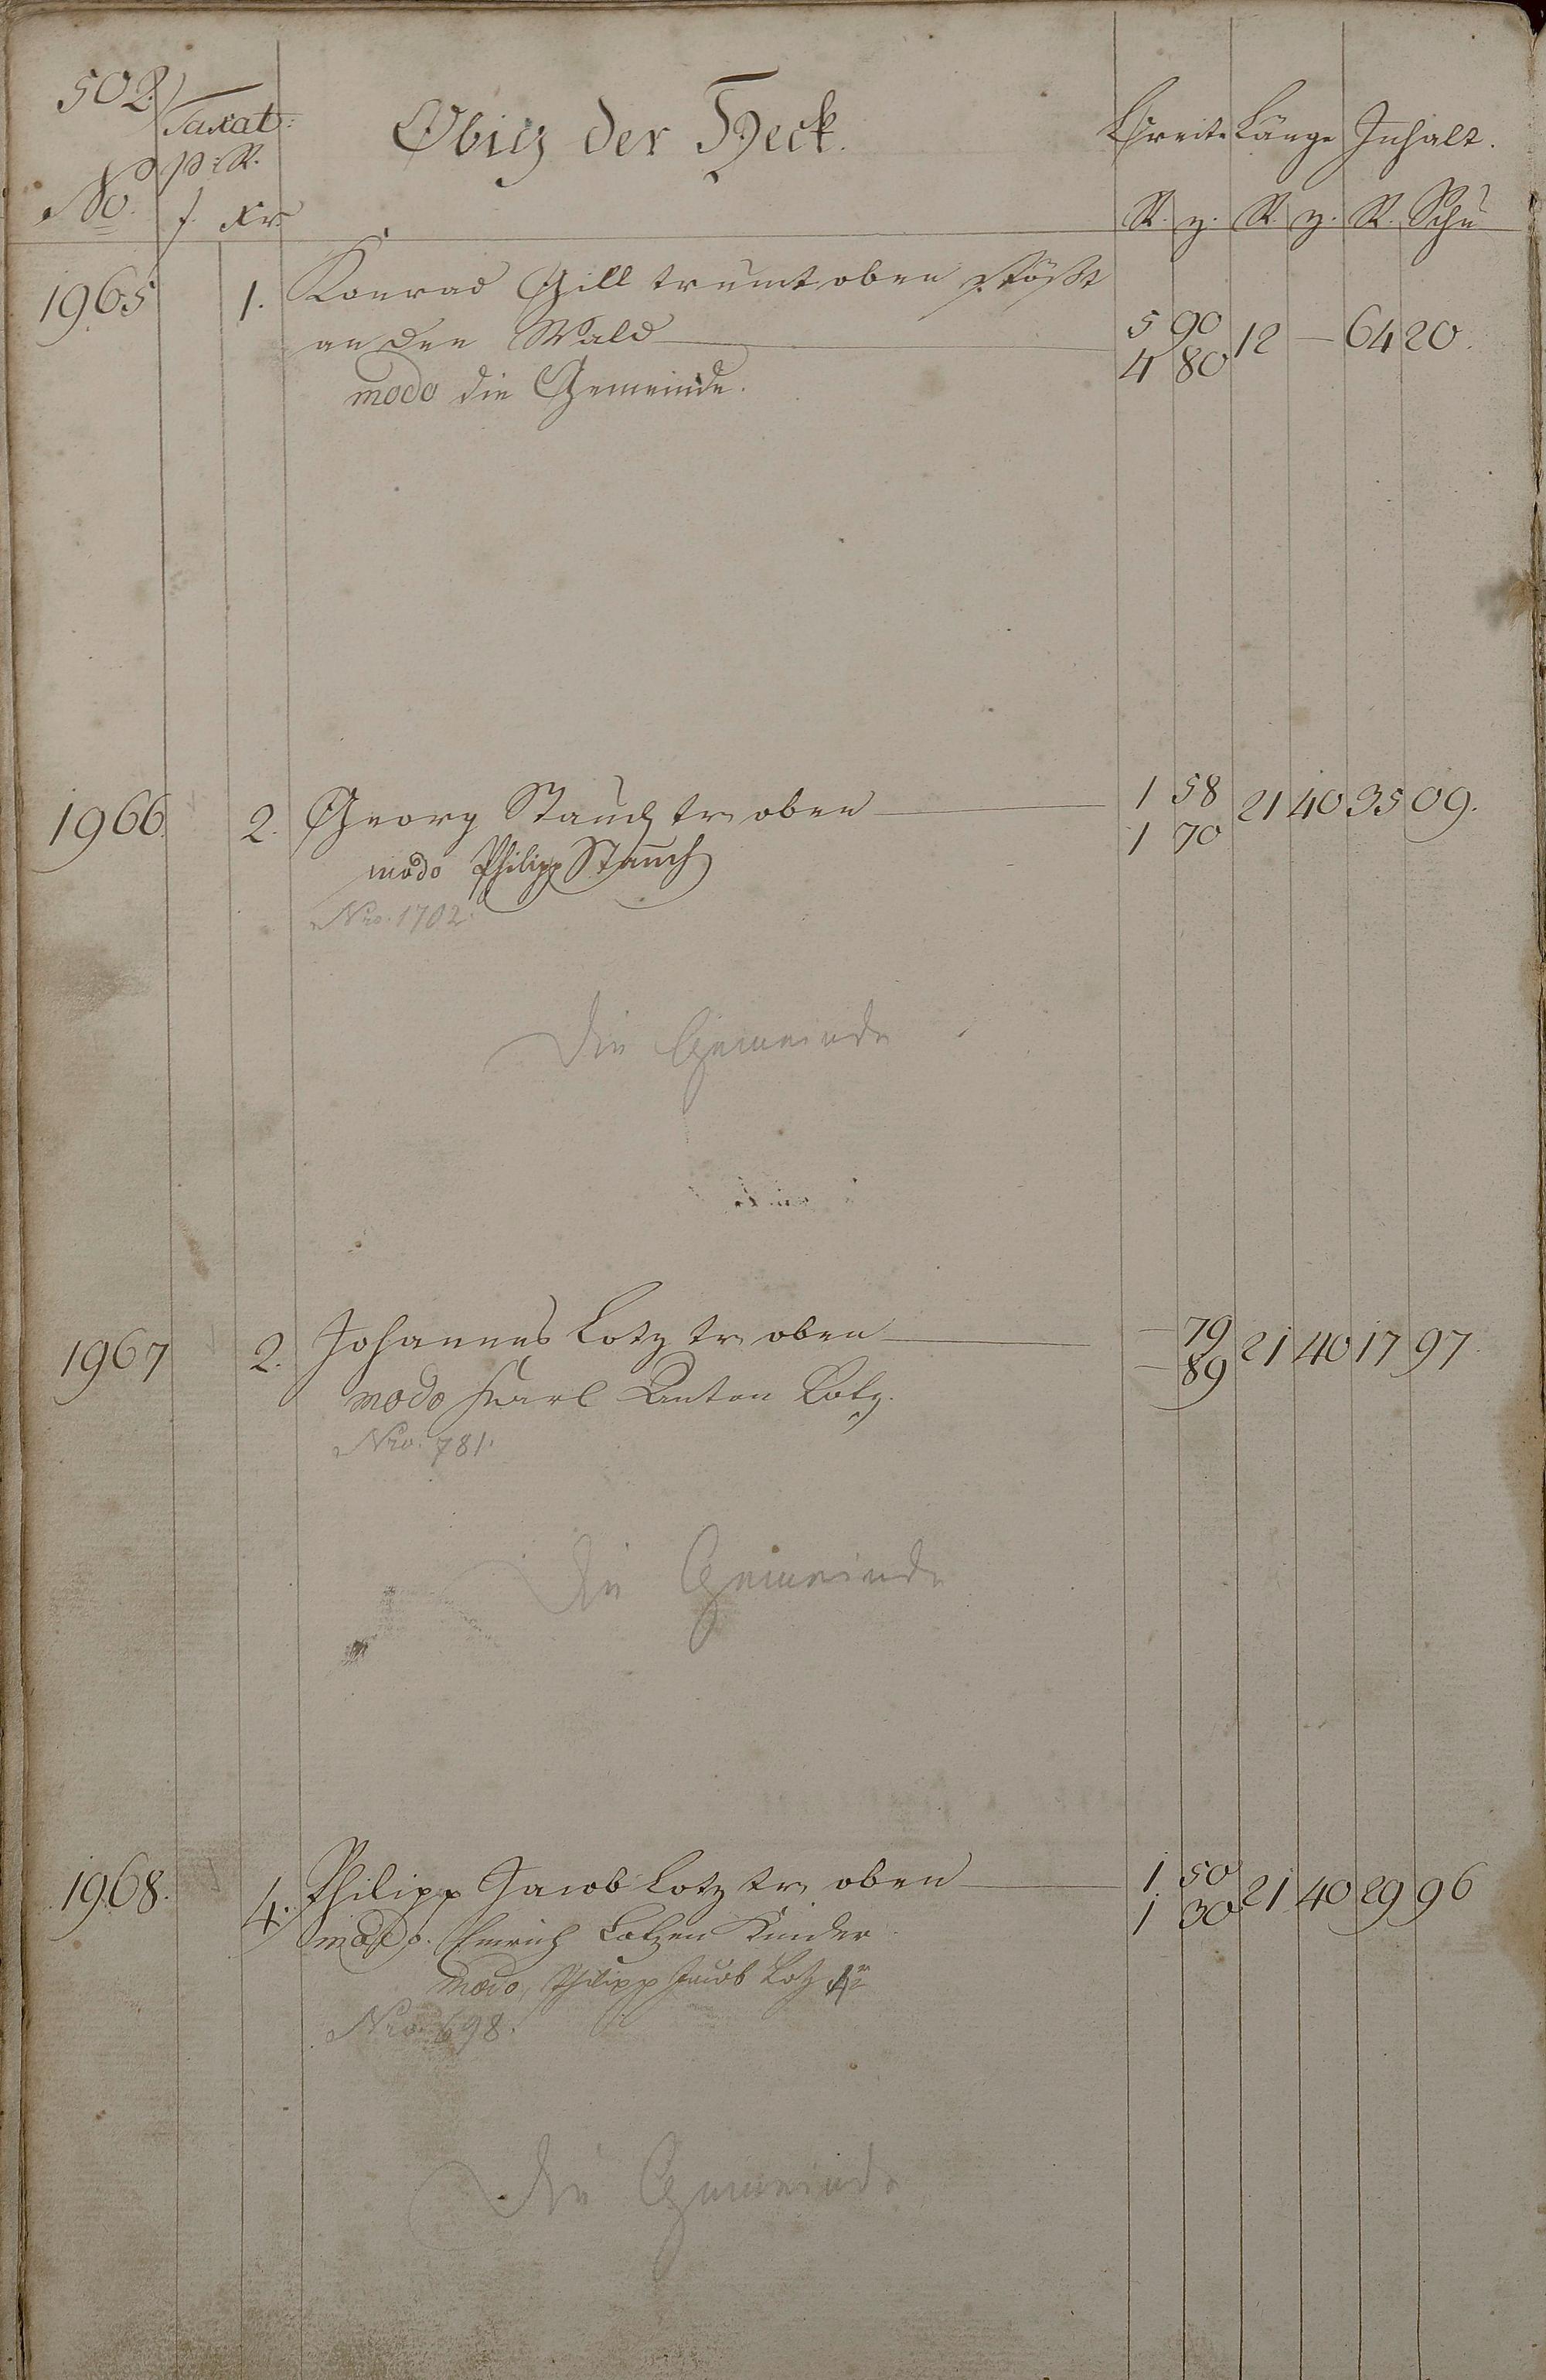 502.
Taxat:
p: R.
No. f. Xr.
Obig der Heck.
Breite Länge Inhalt.
R. z. R. z. R. Schu
1965 1. Konrad Gill trumt oben stößt
an den Wald
5 90 12 — 64 20.
4 80
modo die Gemeinde.
1966. 2. Georg Stauch tr. oben
1 58 21 40 35 09.
1 70
modo Philipp Stauch
Nro. 1702.
Die Gemeinde
1967 2. Johannes Lotz tr. oben
— 79 21 40 17 97.
— 89
modo Karl Anton Lotz.
Nro. 781.
Die Gemeinde
1968. 4. Philipp Jacob Lotz tr. oben
1 50 21 40 29 96
1 30
modo. Emrich Lotzen Kinder
modo, Philipp Jacob Lotz
Nro. 698.
Die Gemeinde